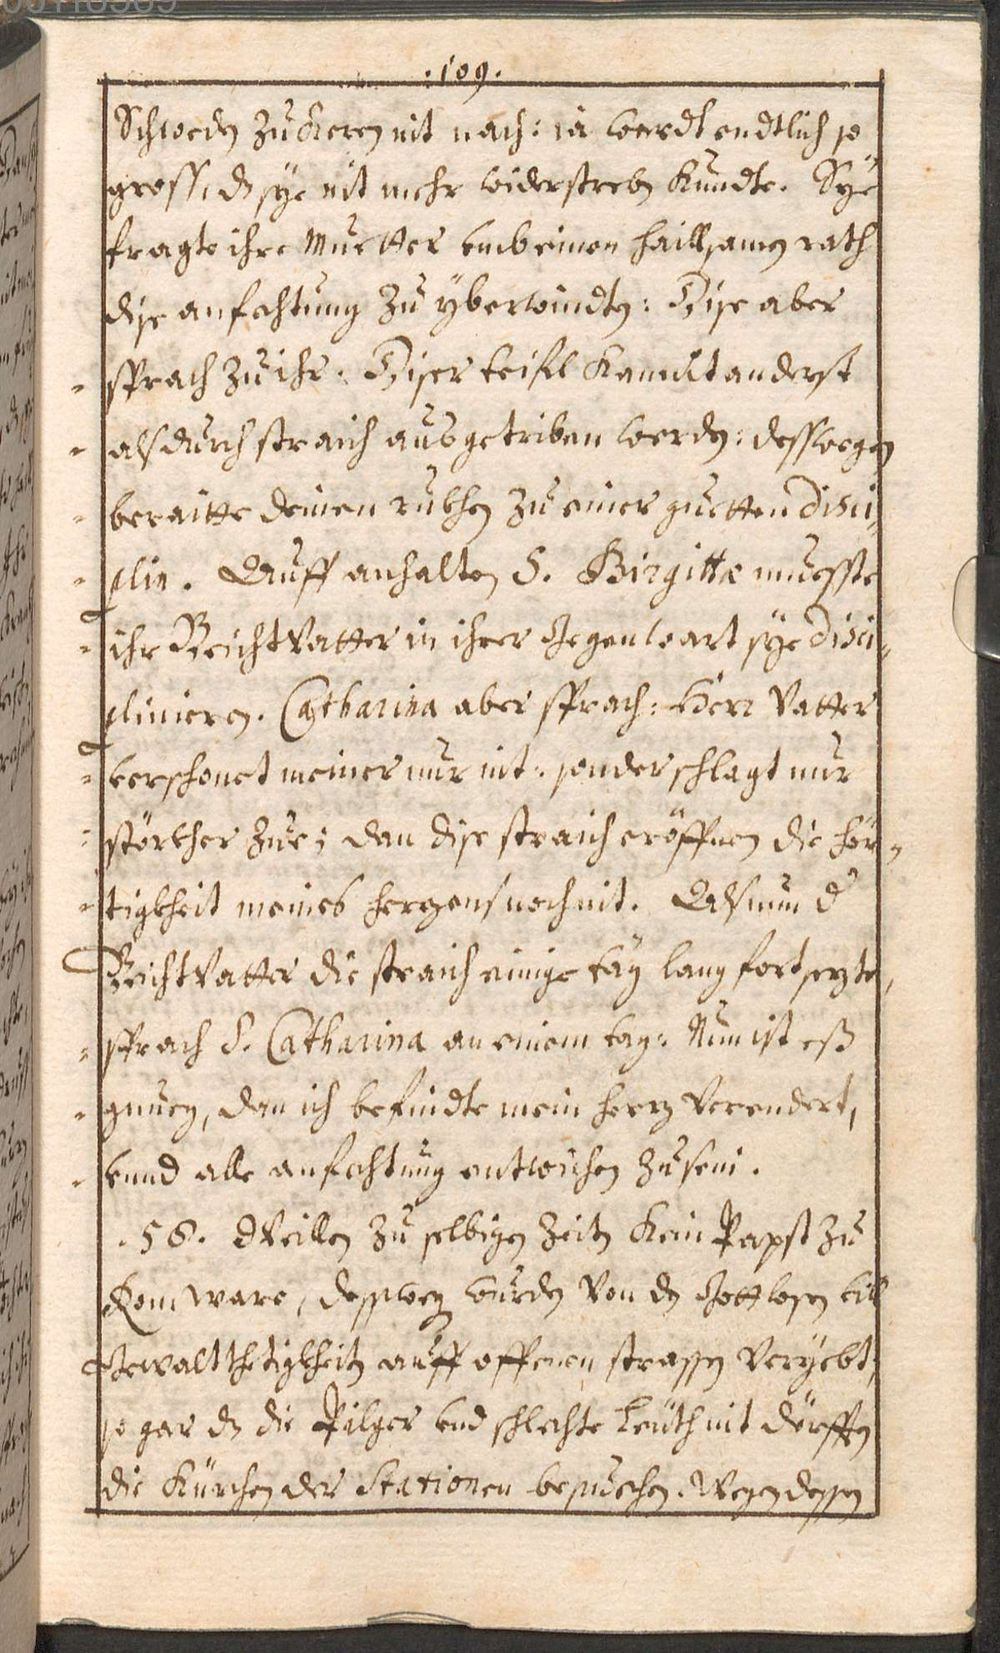 .109.
Schweden zukeren nit nach: ia werdt endtlich so
gross, dz sye nit mehr widerstreben kundte. Sye
fragte ihre Muetter umb einen haillsamen rath
dise anfechtung zu yberwindten: Dise aber
sprach zu ihr: Diser teifel kan nit anderst
als durch straich ausgetriben werden: desswegen
beraitte deinen rukhen zu einer guetten disci-
plin. Auff anhalten S. Birgittæ muesste
ihr Beichtvatter in ihrer gegenwart sye disci-
plinieren. Catharina aber sprach: Herr Vatter
verschonet meiner nur nit: sonder schlagt nur
störkher zue; dan dise straich eröffnen die hör-
tigkheit meines herzens noch nit. Als nun d
Beichtvatter die straich einige täg lang fortsezte,
sprach S. Catharina an einem tag: Nun ist eß
gnueg, dan ich befindte mein herz verendert,
vnnd alle anfechtung entwichen zu sein.
.56. Weillen zu selbigen Zeiten kein Papst zu
Rom ware, desswegen wurden von den Gottlosen vil
Gewaltthetigkheiten auff offenen strassen veryebt,
so gar dz die Pilger vnd schlechte Leuth nit dörffen
die Kürchen der Stationen besuechen. Wegen dessen